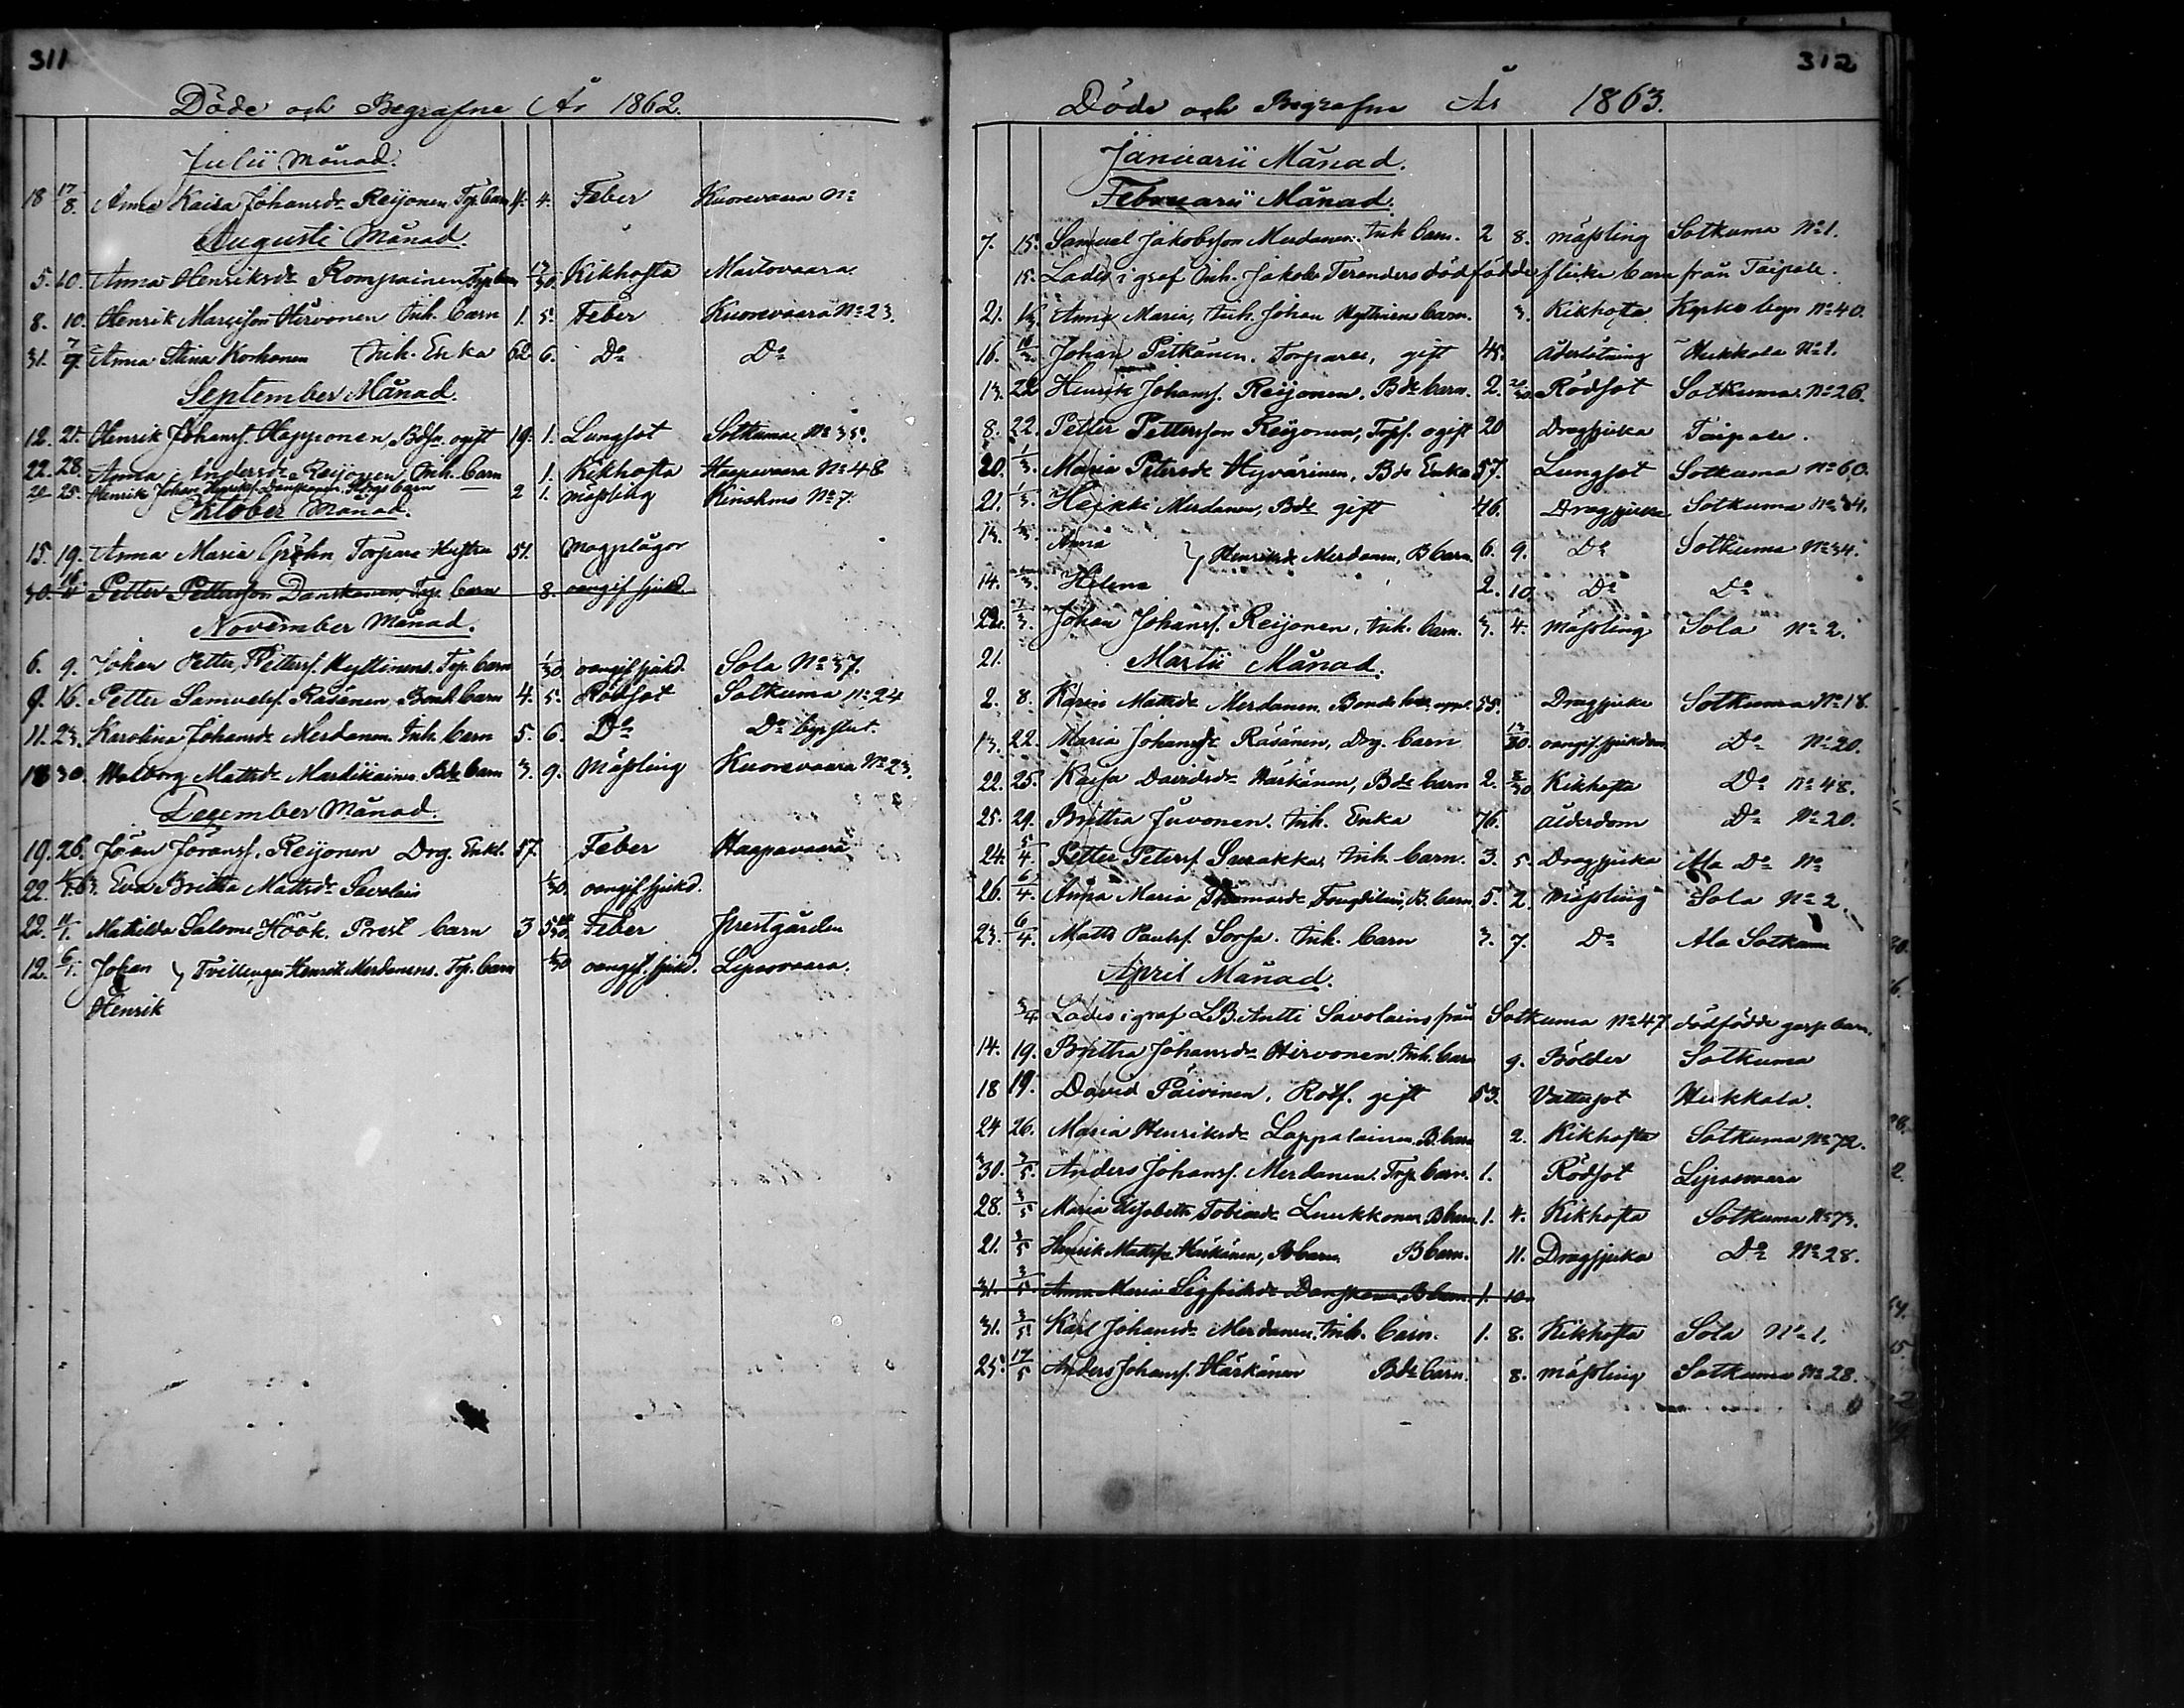 311
Döde och Begrafne År 1862.
Julii Månad.
18 17/8. Anna Kaisa Johansdr Reijonen Top. barn 4. 4. Feber Kuorevaara No
Augusti Månad.
5. 10. Anna Henriksdr Rompainen, Top. barn 17/30. Kikhosta Martovaara
8. 10. Henrik Marcisson Hirvonen Inh. barn 1. 5. Feber Kuorevaara No 23.
31. 7/9. Anna Stina Korhonen Inh. Enka 62 6. Do Do
September Månad.
12. 21. Henrik Johansf. Happonen, Bdsn ogift 19. 1. Lungsot Sotkuma No 35.
22. 28. Anna Andersdr Reijonen Inh. barn 1. Kikhosta Haapavaara No 48
20 25. Henrik Johan Henriksf. Danskanen 2 1. Mässling Rinohma No 7.
Oktober Månad.
15. 19. Anna Maria Gröhn, Torpare Hustru 51. Magplågor
30. 16/11 Petter Pettersson Danskanen, Top. barn 8. oangif. sjukd.
November Månad.
6. 9. Johan Petter, Pettersf. Hyttinens Top. barn 1/30 oangif. sjukd. Sola No 37.
9. 16. Petter Samuelsf. Räsänen Bond. barn 4. 5. Rödsot Sotkuma No 24
11. 23. Karolina Johansdr Merdanen Inh. barn 5. 6. Do Do
18 30. Walborg Mattsdr Mardikainen Bde barn 3. 9. Mässling Kuorevaara No 23.
December Månad.
19. 26. Jöran Jöransf. Reijonen Drg. Enkl. 57. Feber Haapavaara
22. Eva Britta Mattsdr Savolain 1/30. oangif. sjukd.
22. 11/1. Mathilda Salome Höök. Prest barn 3 5 Feber Prestgården
12. 6/1. Johan } Tvillingar Henrik Merdanens. Top. barn oangif. sjukd. Liposvaara.
Henrik
312
Döde och Begrafne År 1863.
Januarii Månad.
Februarii Månad.
7. 15. Samuel Jakobsson Merdanen Inh. barn. 2 8. Mässling Sotkuma No 1.
15. Lades i graf Inh. Jakob Teranders dödfödde flicke barn från Taipale.
21. Anna Maria, Inh. Johan Hyttinens barn. 3. Kikhosta Kyrko byn No 40.
16. Johan Pitkänen. Torpare, gift 45. Åderlåtning Hukkala No 1.
13. 22 Henrik Johansf. Reijonen. Bde barn. 2. 20/30 Rödsot Sotkuma No 26.
8. 22. Petter Pettersson Reijonen, Topf. ogift 20 Dragsjuka Taipale.
20. 1/3. Maria Petersdr Hyvärinen, Bde Enka 57. Lungsot Sotkuma No 60.
21. 1/3. Heikki Merdanen, Bde gift 46. Dragsjuka Sotkuma No 34.
13. Anna } Henriksdr Merdanen, B barn. 6. 9. Do Sotkuma No 34.
14. Helena 2. 10. Do Do
22. 1/3. Johan Johansf. Reijonen, Inh. barn. 3. 4. Mässling Sola No 2.
21. Martii Månad.
2. 8. Karin Mattsdr Merdanen Bonde 55. Dragsjuka Sotkuma No 18.
13. 22. Maria Johansdr Räsänen, Drg. barn 13/30. oangif. sjukdom Do No 20.
22. 25. Kaisa Davidsdr Härkänen, Bde barn 2. 8/30 Kikhosta Do No 48.
25. 29. Britta Juvonen. Inh. Enka 76. Ålderdom Do No 20.
24. 5/4. Petter Petersf. Surakka, Inh. barn. 3. 5. Dragsjuka Ala Do No
26. 6/4. Anna Maria Thomasdr B. barn 5. 2. Mässling Sola No 2.
23. 6/4. Matts Paulsf. Sorsa. Inh. barn 3. 7. Do Ala Sotkuma
April Månad.
3/4. Lades i graf LB. Antti Savolains från Sotkuma No 47 dödfödde goss barn.
14. 19. Britha Johansdr Hirvonen. Inh. barn 9. Bölder Sotkuma
18 19. David Päivinen. Rotf. gift 53. Vattusot Hukkala.
24 26. Maria Henriksdr Lappalainen. B. barn 2. Kikhosta Sotkuma No 72.
30. 3/5. Anders Johansf. Merdanen. Top. barn. 1. Rödsot Liposvaara
28. 3/5 Maria Elisabeth Tobiasdr Luukkonen B barn. 1. 4. Kikhosta Sotkuma No 73.
21. 3/5 Henrik Mattsf. Härkänen, B barn B barn. 11. Dragsjuka Do No 28.
31. 3/5. Anna Maria Sigfridsdr Danskanen, B barn. 1. 10.
31. 3/5. Karl Johansdr Merdanen. Inh. barn. 1. 8. Kikhosta Sola No 1.
25. 17/5 Anders Johansf. Härkänen Bde barn. 8. Mässling Sotkuma No 28.